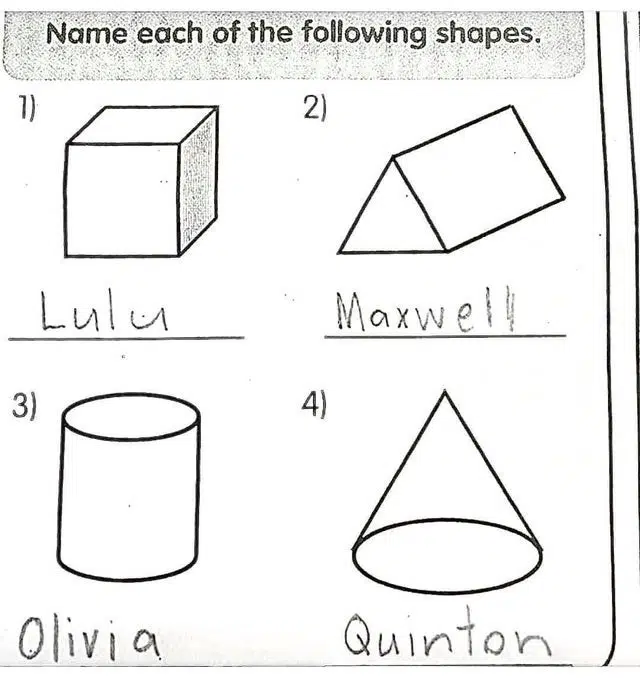 Name each of the following shapes.
1) 2)
Lulu Maxwell
3) 4)
Olivia Quinton